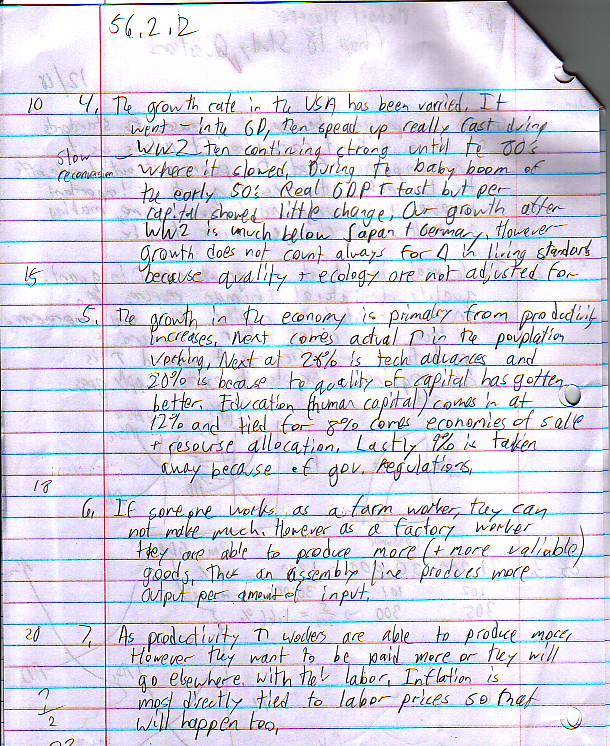 56.2.2
10 4. The growth rate in the USA has been varried. It
went - into GD, then spead up really fast dring
slow WW2 ten continuing strong until te 80's
where it slowed. During te baby boom of
the early 50's Real GDP ↑ fast but per
capital showed little change. Our growth after
WW2 is much below Japan + Germany. However
growth does not count always for Δ in living standars
15 because quality + ecology are not adjusted for
5. The growth in the economy is primaly from productivity
increases. Next comes actual ↑ in the pouplation
working. Next at 28% is tech advances and
20% is because to quality of capital has gotten
better. Education (human capital) comes in at
12% and tied for 8% comes economies of sale
+ resourse allocation. Lastly 9% is taken
away because of gov. regulations.
18
6. If someone works as a farm worker, they can
not make much. However as a factory worker
they are able to produce more (+ more valiable)
goods. Thus an assembly line produces more
output per amount of input.
20 7. As productivity ↑ workers are able to produce more.
However they want to be paid more or they will
go elsewhere with their labor. Inflation is
? most directly tied to labor prices so that
2 will happen too.